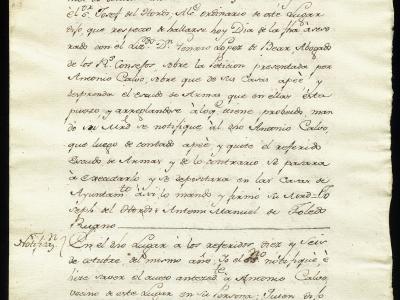 El Sr. Josef del Hondo, Alcde ordinario de este Lugar
dijo, que respecto de hallarse hoy Dia de la fha
rado con el Licdo Dn. Lopez de Bear Abogado
de los Rs. Consejos sobre la Peticion presentada por
Antonio Calvo, sobre que de sus Casas apée y
desprenda el Escudo de Armas que en ellas esta
puesto y arreglandose à lo q. tiene probeido, man
do su Mrd. se notifique al dho Antonio Calvo,
que luego de contado apée, y quite el referido
Escudo de Armas y de lo contrario se pasara
à executarlo y se depositara en las Casas de
Ayuntamto. asi lo mandò y firmò su Mrd.
Joseph del Hondo = Antonio Manuel de Toledo
Rujano
Notifon. / En el dho Lugar à los referidos diez y seis
de octubre del mismo año, Yo el no. notifiquè è
hice saver el auto antecedte. à Antonio Calvo,
vecino de este Lugar en su Persona;